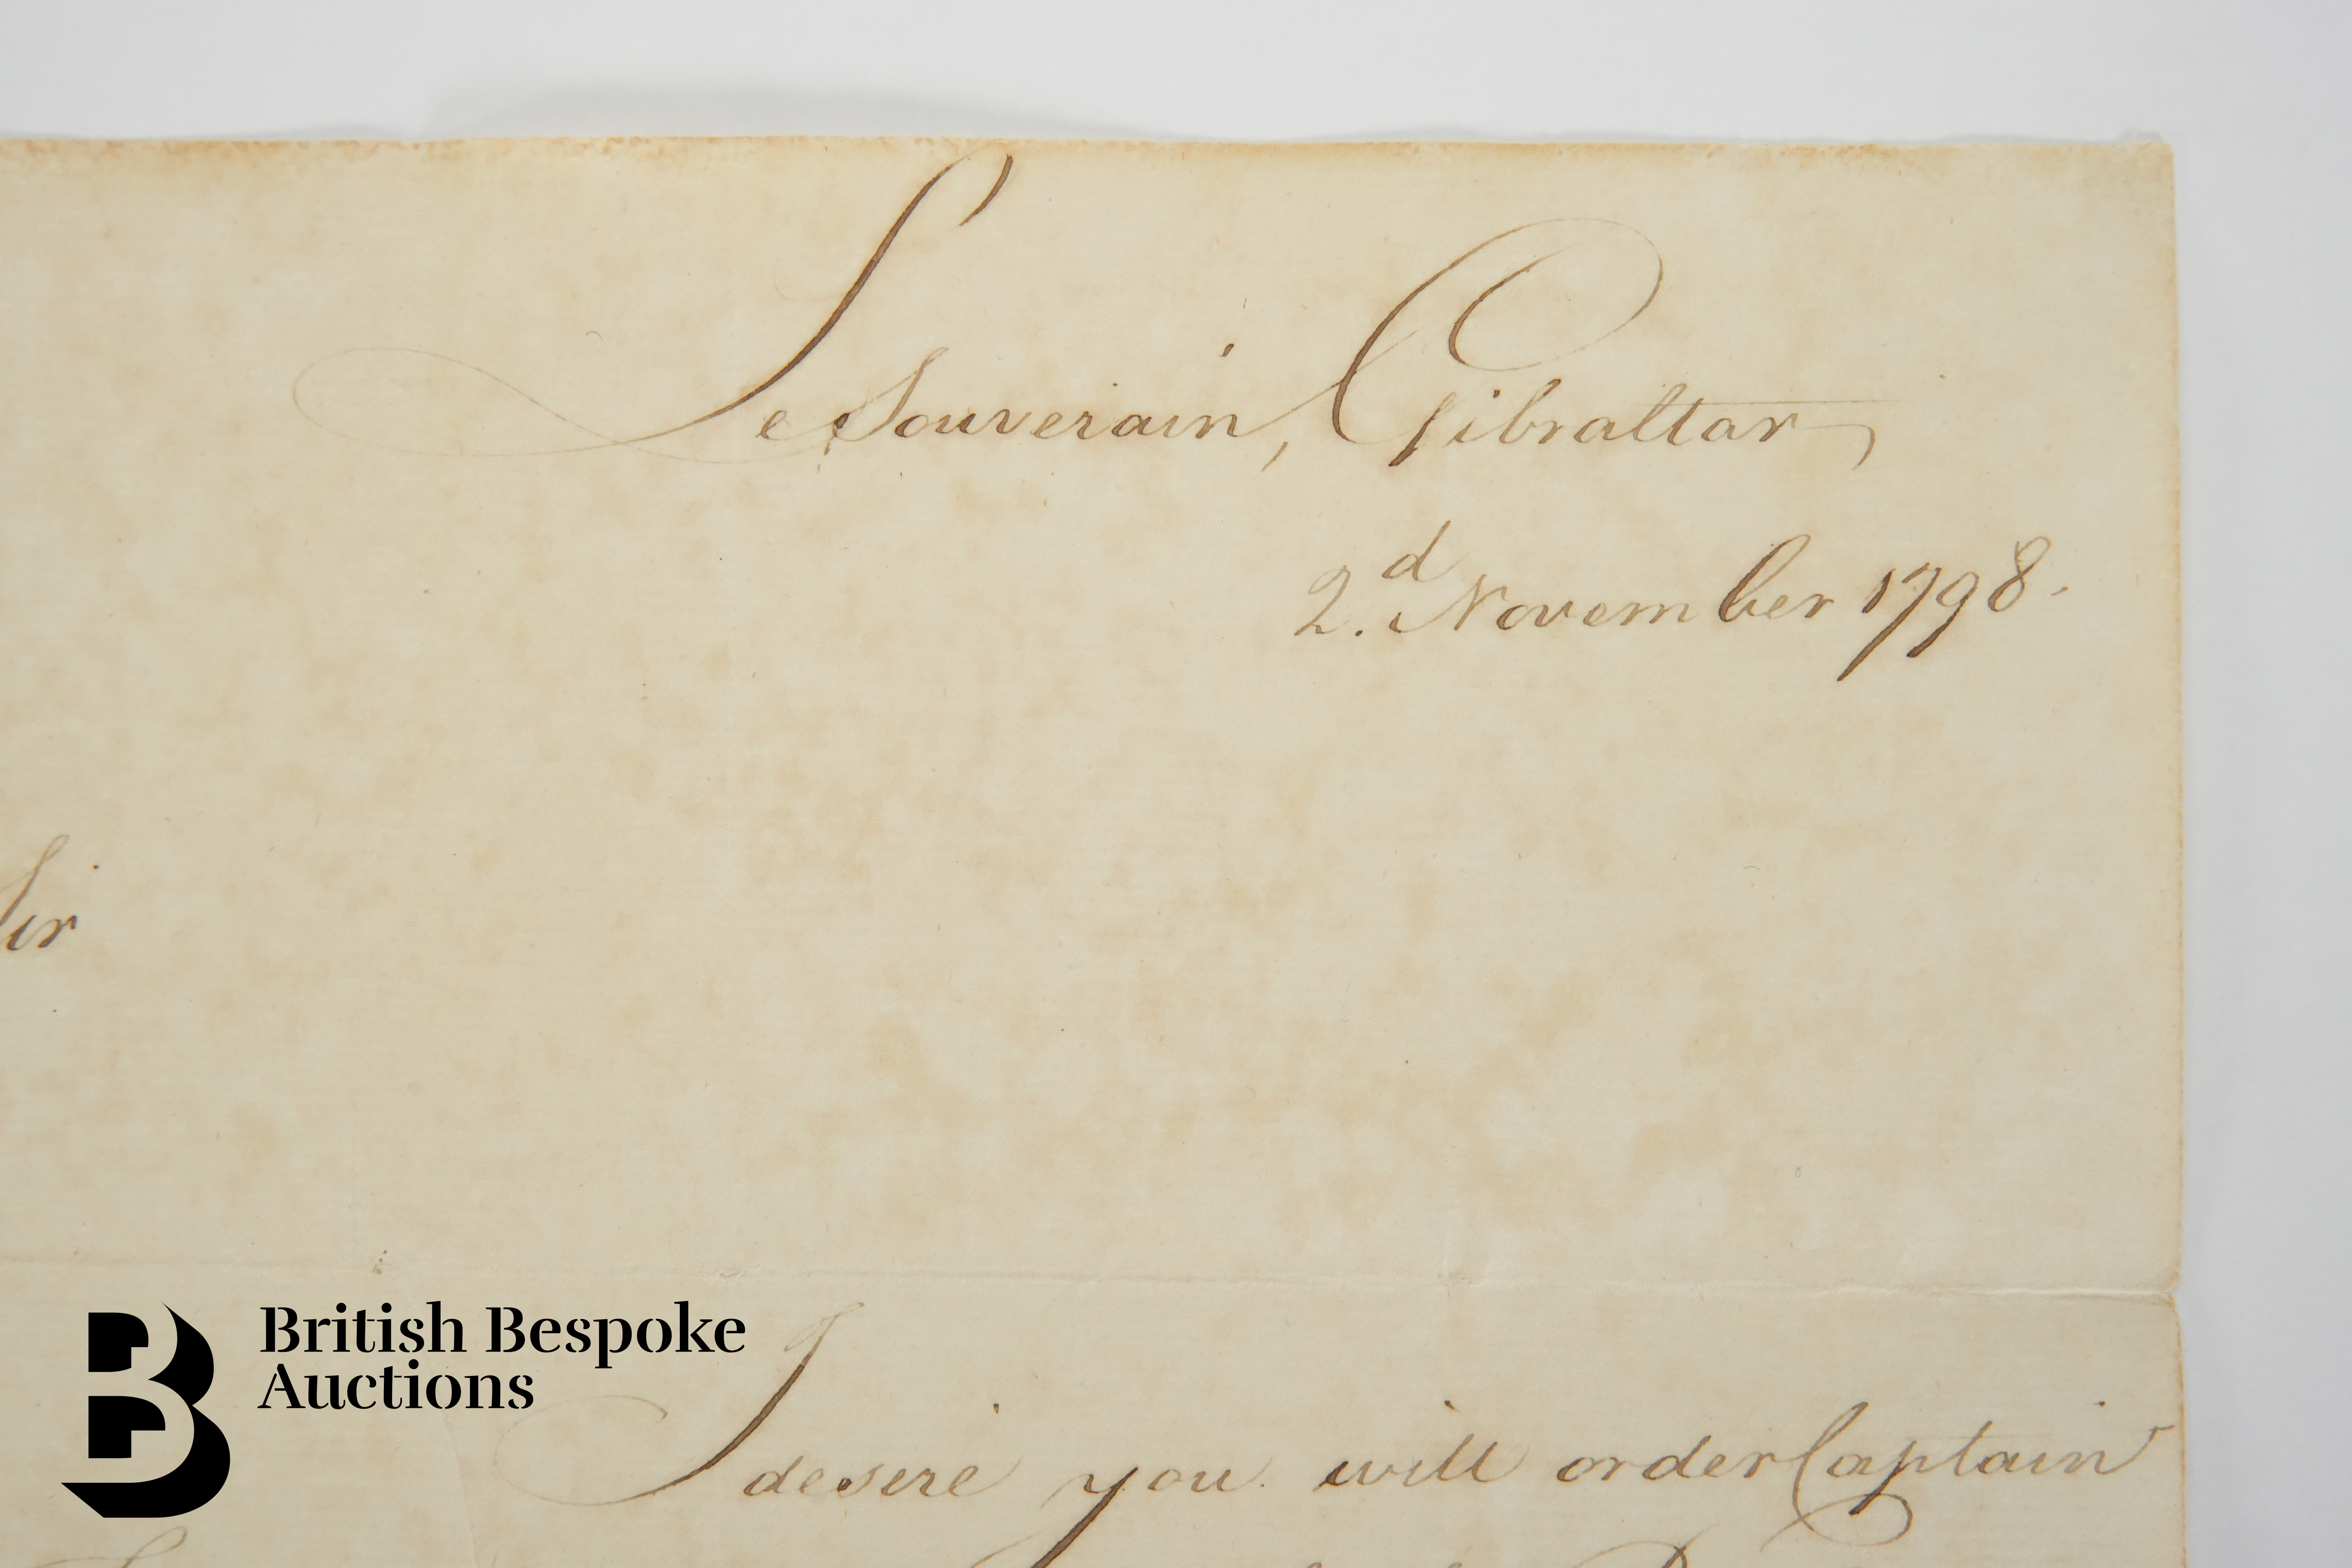 Le Souverain, Gibraltar
2.d November 1798.
Sir
British Bespoke
Auctions
I desere you will order Captain